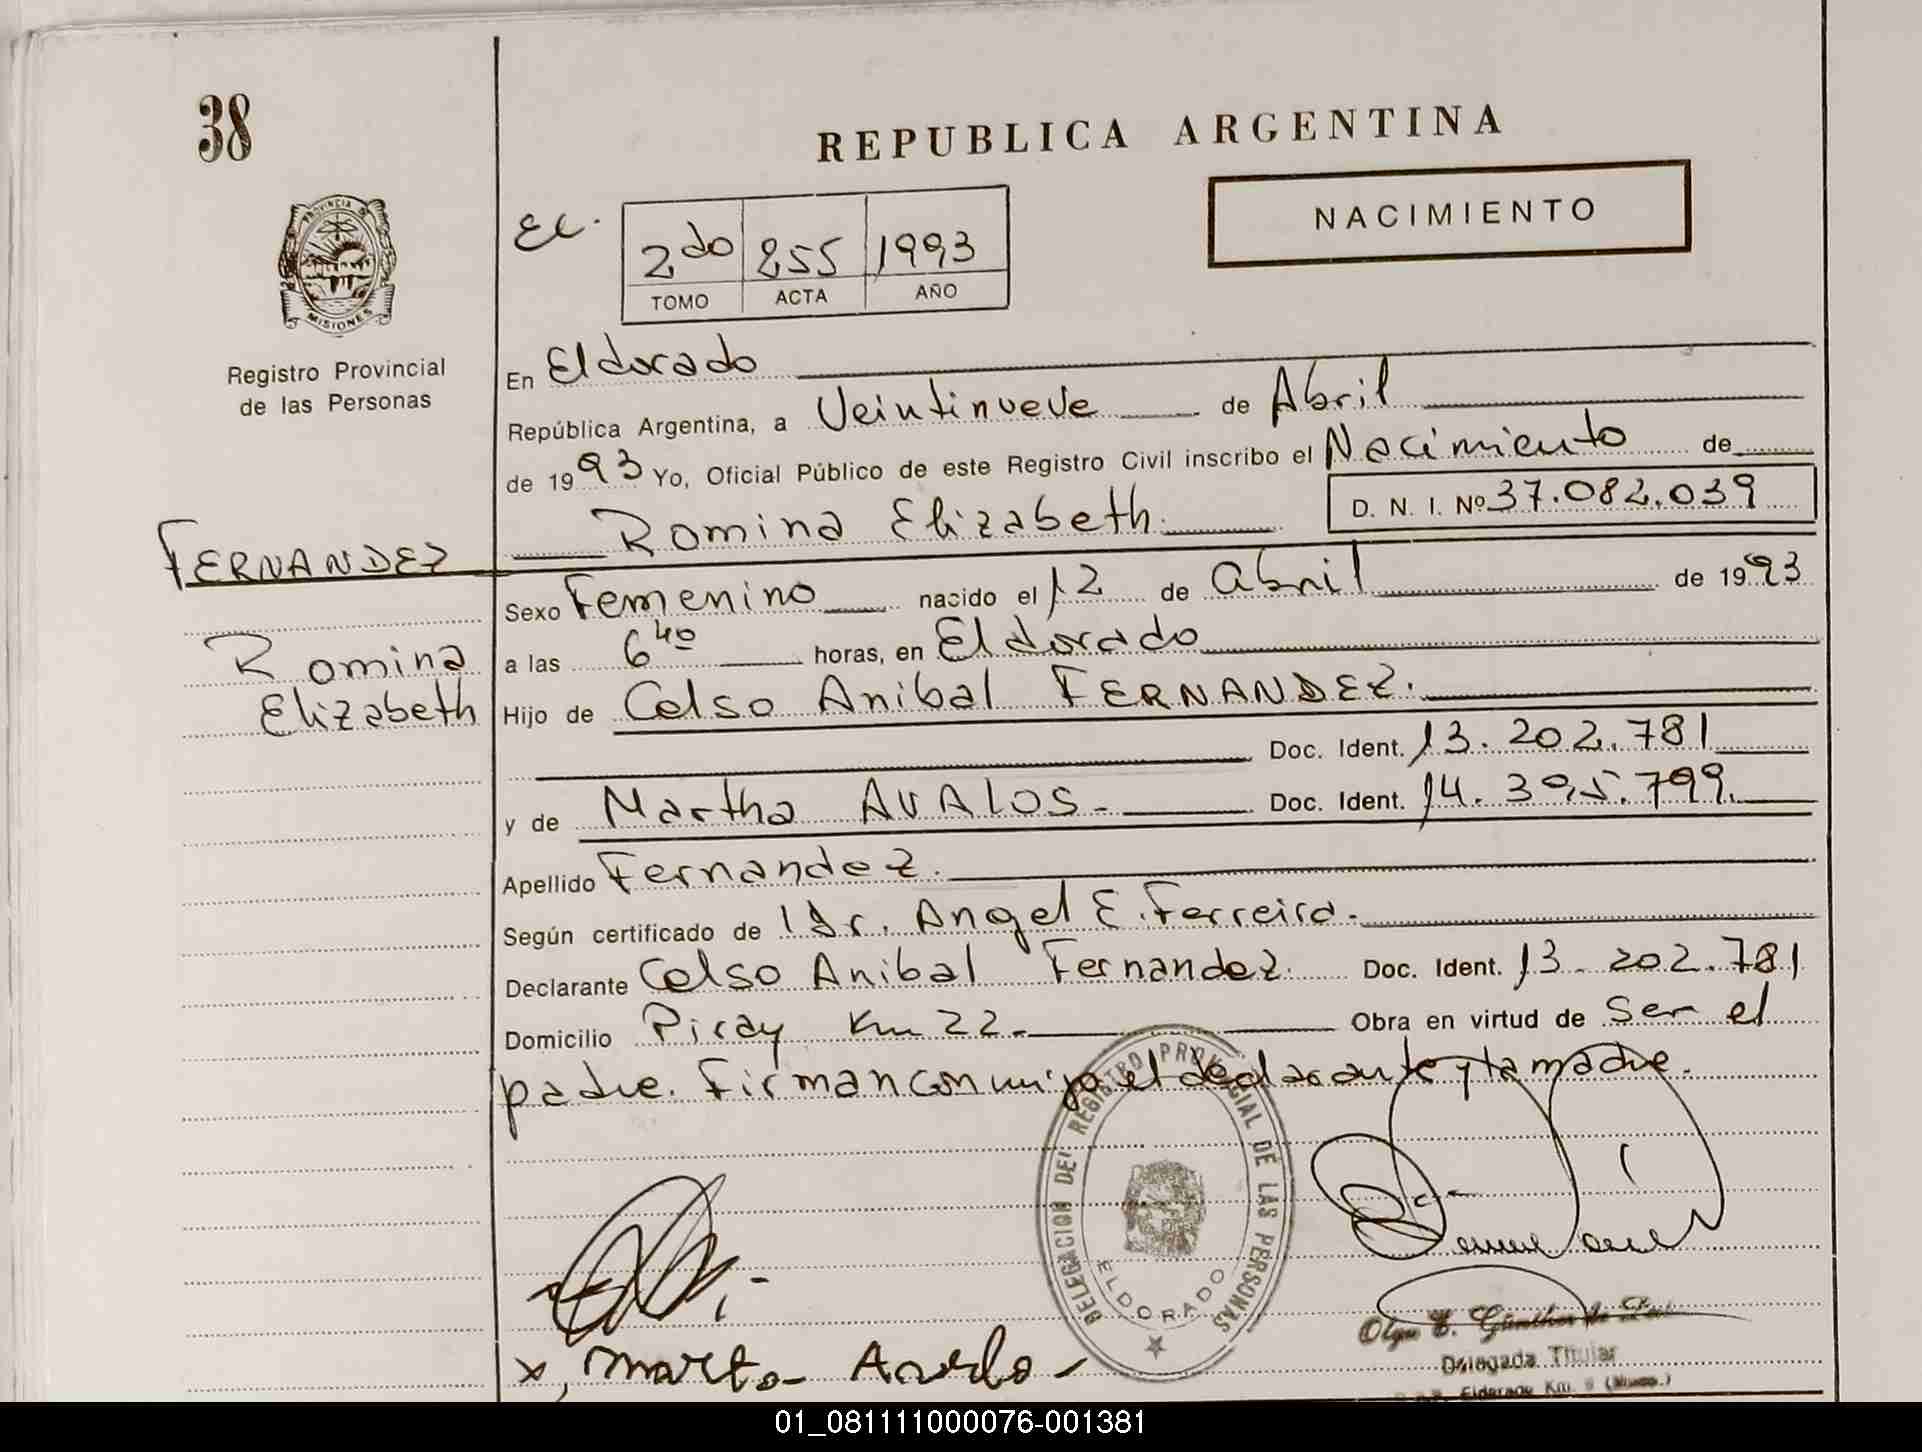 38
REPUBLICA ARGENTINA
NACIMIENTO
PROVINCIA DE
MISIONES
Registro Provincial
de las Personas
Ec.
2do 255 1993
TOMO ACTA AÑO
En Eldorado
República Argentina, a Veintinueve de Abril
de 1993 Yo, Oficial Público de este Registro Civil inscribo el Nacimiento de
D. N. I. Nº 37.082.039
Romina Elizabeth.
FERNANDEZ
Romina
Elizabeth
Sexo Femenino nacido el 12 de abril de 1993
a las 6 40 horas, en Eldorado
Hijo de Celso Anibal FERNANDEZ.
Doc. Ident. 13.202.781
y de Martha AVALOS- Doc. Ident. 14.395.799.
Apellido Fernandez.
Según certificado de 1 Dr. Angel E. Ferreira.
Declarante Celso Anibal Fernandez. Doc. Ident. 13.202.781
Domicilio Piray Km 22.- Obra en virtud de Ser el
padre. Firman conmigo el declarante y la madre.
DELEGACION DEL REGISTRO PROVINCIAL DE LAS PERSONAS
ELDORADO
x, Marta Avalo-
Olga E. Günther de
Delegada Titular
Eldorado Km. 9 (Mnes.)
01_081111000076-001381